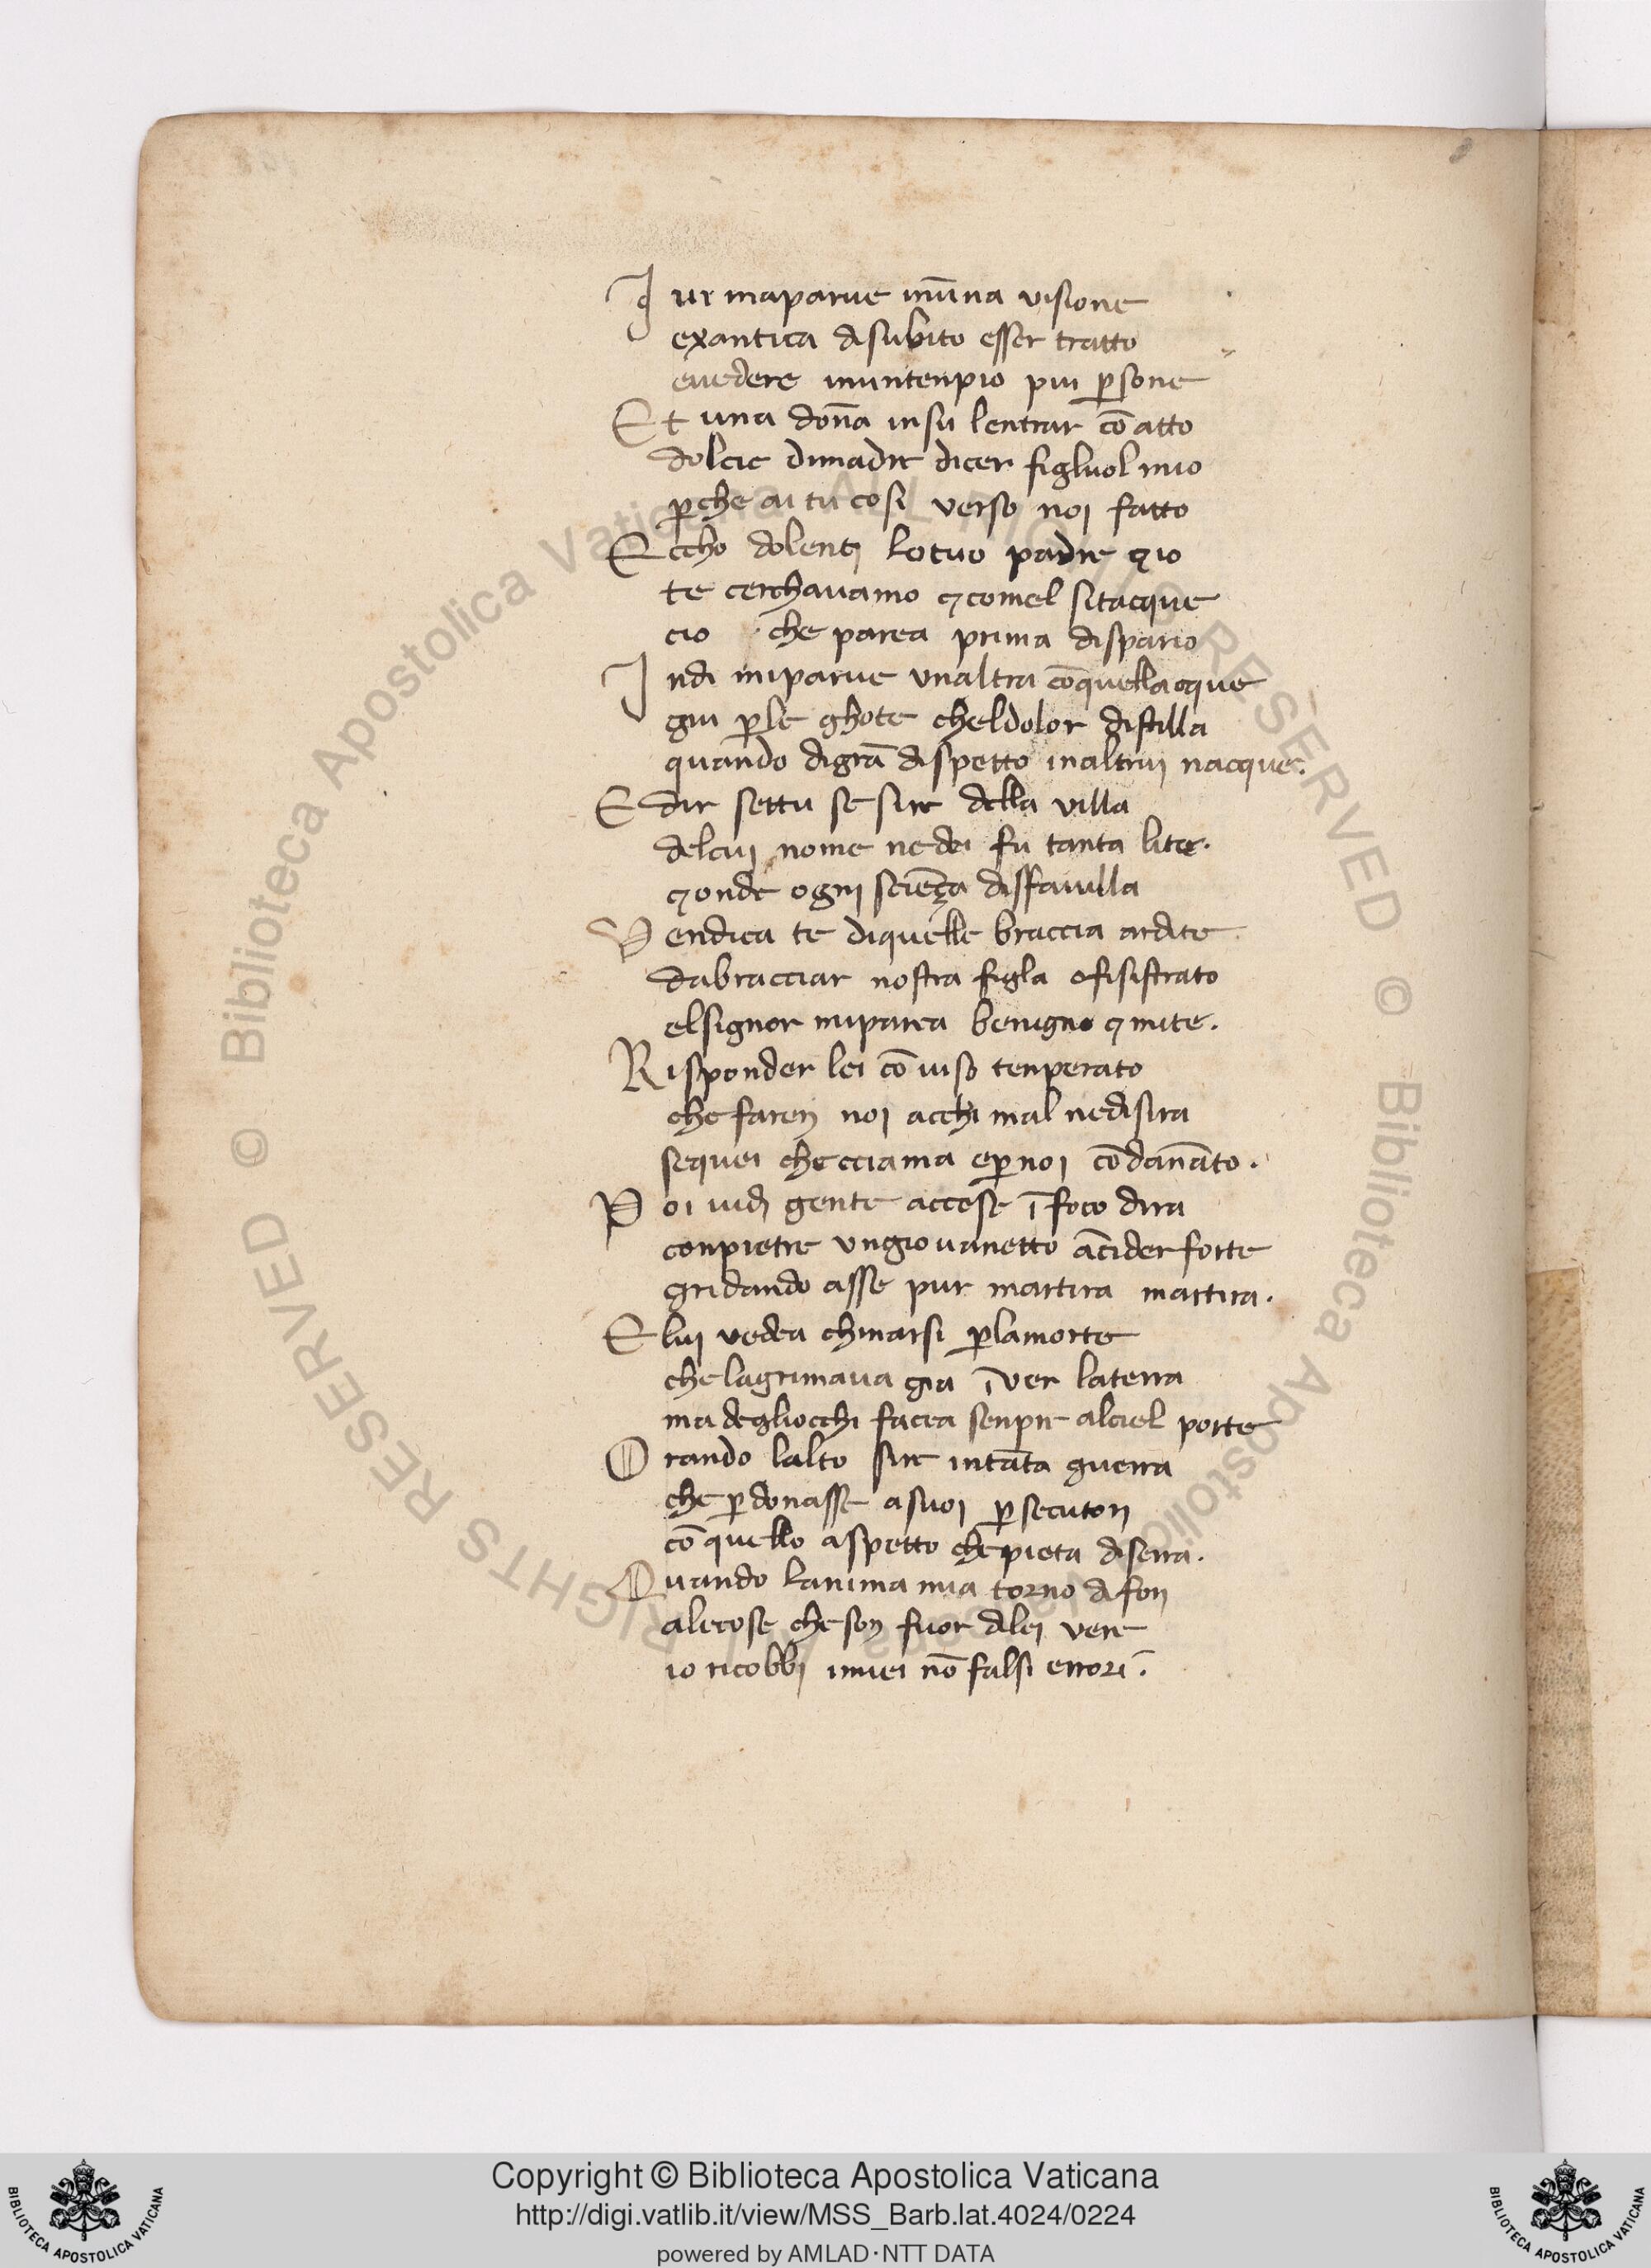 I vi maparve inũna visione
exantica disubito esser tratto
evedere inuntenpio piu ꝑsone
Et una don̄a insu lentrar cō atto
dolcie dimadre dicer figluol mio
ꝑche ai tu cosi verso noi fatto
Eccho dolentj lotuo padre ⁊ io
te cerchavamo ⁊ comel sitacque
cio che parea prima dispario
Indi miparve unaltra cōquellacque
giu ꝑle ghote cheldolor distilla
quando digrā dispetto inaltruj nacque.
E dir settu se sire della villa
delcuj nome nedei fu tanta lite.
⁊ onde ognj sciēça disfavilla
Vendica te diquelle braccia ardite
dabracciar nostra figla ofisistrato
elsignor miparea benigno ⁊ mite.
Risponder lei cō viso tenperato
che faren noi acchi mal nedisira
sequei checciama eꝑ noi cōdan̄ato.
Poi vidj gente accese ī foco dira
conpietre ungiovanetto ācider forte
gridando asse pur martira martira.
E luj vedea chinarsi ꝑlamorte
chelagrimava gia īver laterra
ma degliocchi facea senpre alciel porte
Orando lalto sire intāta guerra
che ꝑdonasse asuoi ꝑsecutorj
cō quello aspetto che pieta diserra.
Quando lanima mia torno difori
alecose cheson fuor dilej vere
io ricobbj imiei nō falsi errori.
Copyright © Biblioteca Apostolica Vaticana
http://digi.vatlib.it/view/MSS_Barb.lat.4024/0224
powered by AMLAD·NTT DATA
BIBLIOTECA APOSTOLICA VATICANA
BIBLIOTECA APOSTOLICA VATICANA
© Biblioteca Apostolica Vaticana ALL RIGHTS RESERVED
© Biblioteca Apostolica Vaticana ALL RIGHTS RESERVED